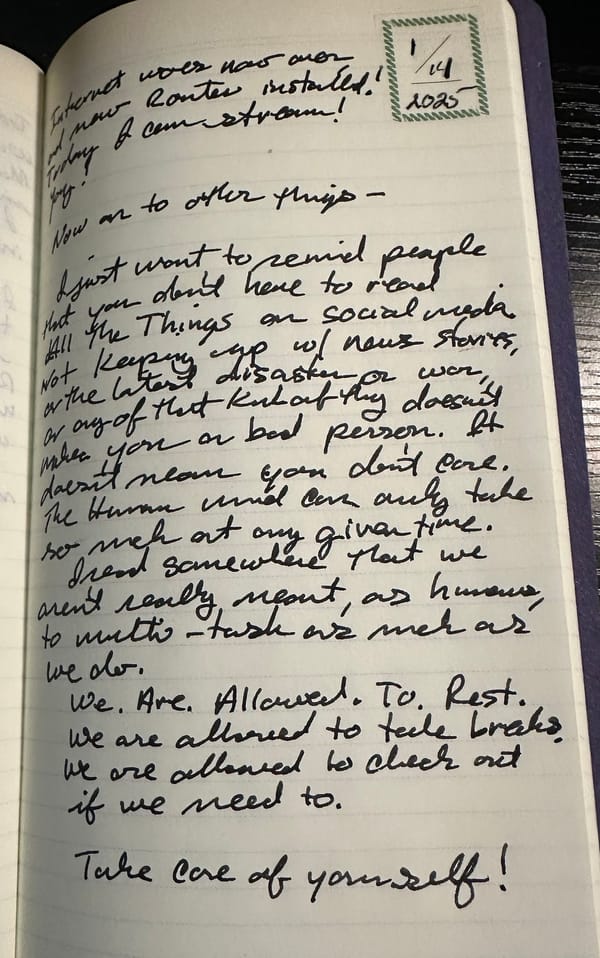 1/14
2025
Internet woes now over
and new Router installed!
Today I can stream!
Yay!
Now on to other things –
I just want to remind people
that you don't have to read
All The Things on social media.
Not keeping up w/ news stories,
or the latest disaster or war,
or any of that kind of thing doesn't
makes you a bad person. It
doesn't mean you don't care.
The Human mind can only take
so much at any given time.
I read somewhere that we
aren't really meant, as humans,
to multi-task as much as
we do.
We. Are. Allowed. To. Rest.
We are allowed to take breaks.
We are allowed to check out
if we need to.
Take care of yourself!